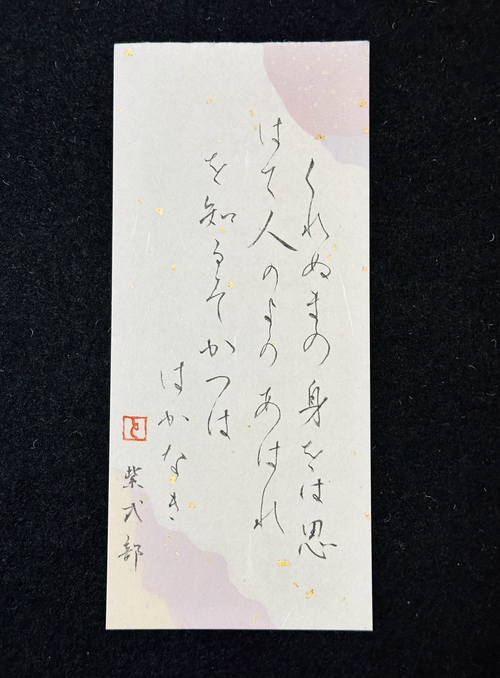 くれぬまの身をは思
はて人のよのあはれ
を知るそかつは
はかなき
紫式部